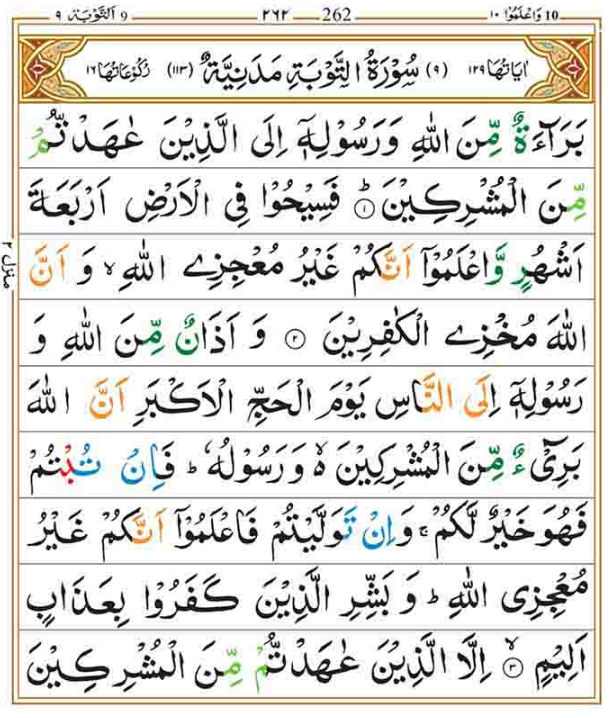 اَلتَّوْبَة ٩ 9 ٢٦٢ 262 وَاعْلَمُوْٓا ١٠ 10
اٰيَاتُهَا ١٢٩ (٩) سُوْرَةُ التَّوْبَةِ مَدَنِيَّةٌ (١١٣) رُكُوْعَاتُهَا ١٦
بَرَآءَةٌ مِّنَ اللّٰهِ وَرَسُوْلِهٖٓ اِلَى الَّذِيْنَ عٰهَدْتُّمْ
مِّنَ الْمُشْرِكِيْنَ ؕ ۝١ فَسِيْحُوْا فِى الْاَرْضِ اَرْبَعَةَ
اَشْهُرٍ وَّاعْلَمُوْٓا اَنَّكُمْ غَيْرُ مُعْجِزِى اللّٰهِ ۙ وَ اَنَّ
اللّٰهَ مُخْزِى الْكٰفِرِيْنَ ۝٢ وَ اَذَانٌ مِّنَ اللّٰهِ وَ
رَسُوْلِهٖٓ اِلَى النَّاسِ يَوْمَ الْحَجِّ الْاَكْبَرِ اَنَّ اللّٰهَ
بَرِىْٓءٌ مِّنَ الْمُشْرِكِيْنَ ۙ۬ وَرَسُوْلُهٗ ؕ فَاِنْ تُبْتُمْ
فَهُوَ خَيْرٌ لَّكُمْ ۚ وَاِنْ تَوَلَّيْتُمْ فَاعْلَمُوْٓا اَنَّكُمْ غَيْرُ
مُعْجِزِى اللّٰهِ ؕ وَ بَشِّرِ الَّذِيْنَ كَفَرُوْا بِعَذَابٍ
اَلِيْمٍ ۙ ۝٣ اِلَّا الَّذِيْنَ عٰهَدْتُّمْ مِّنَ الْمُشْرِكِيْنَ
منزل ٢